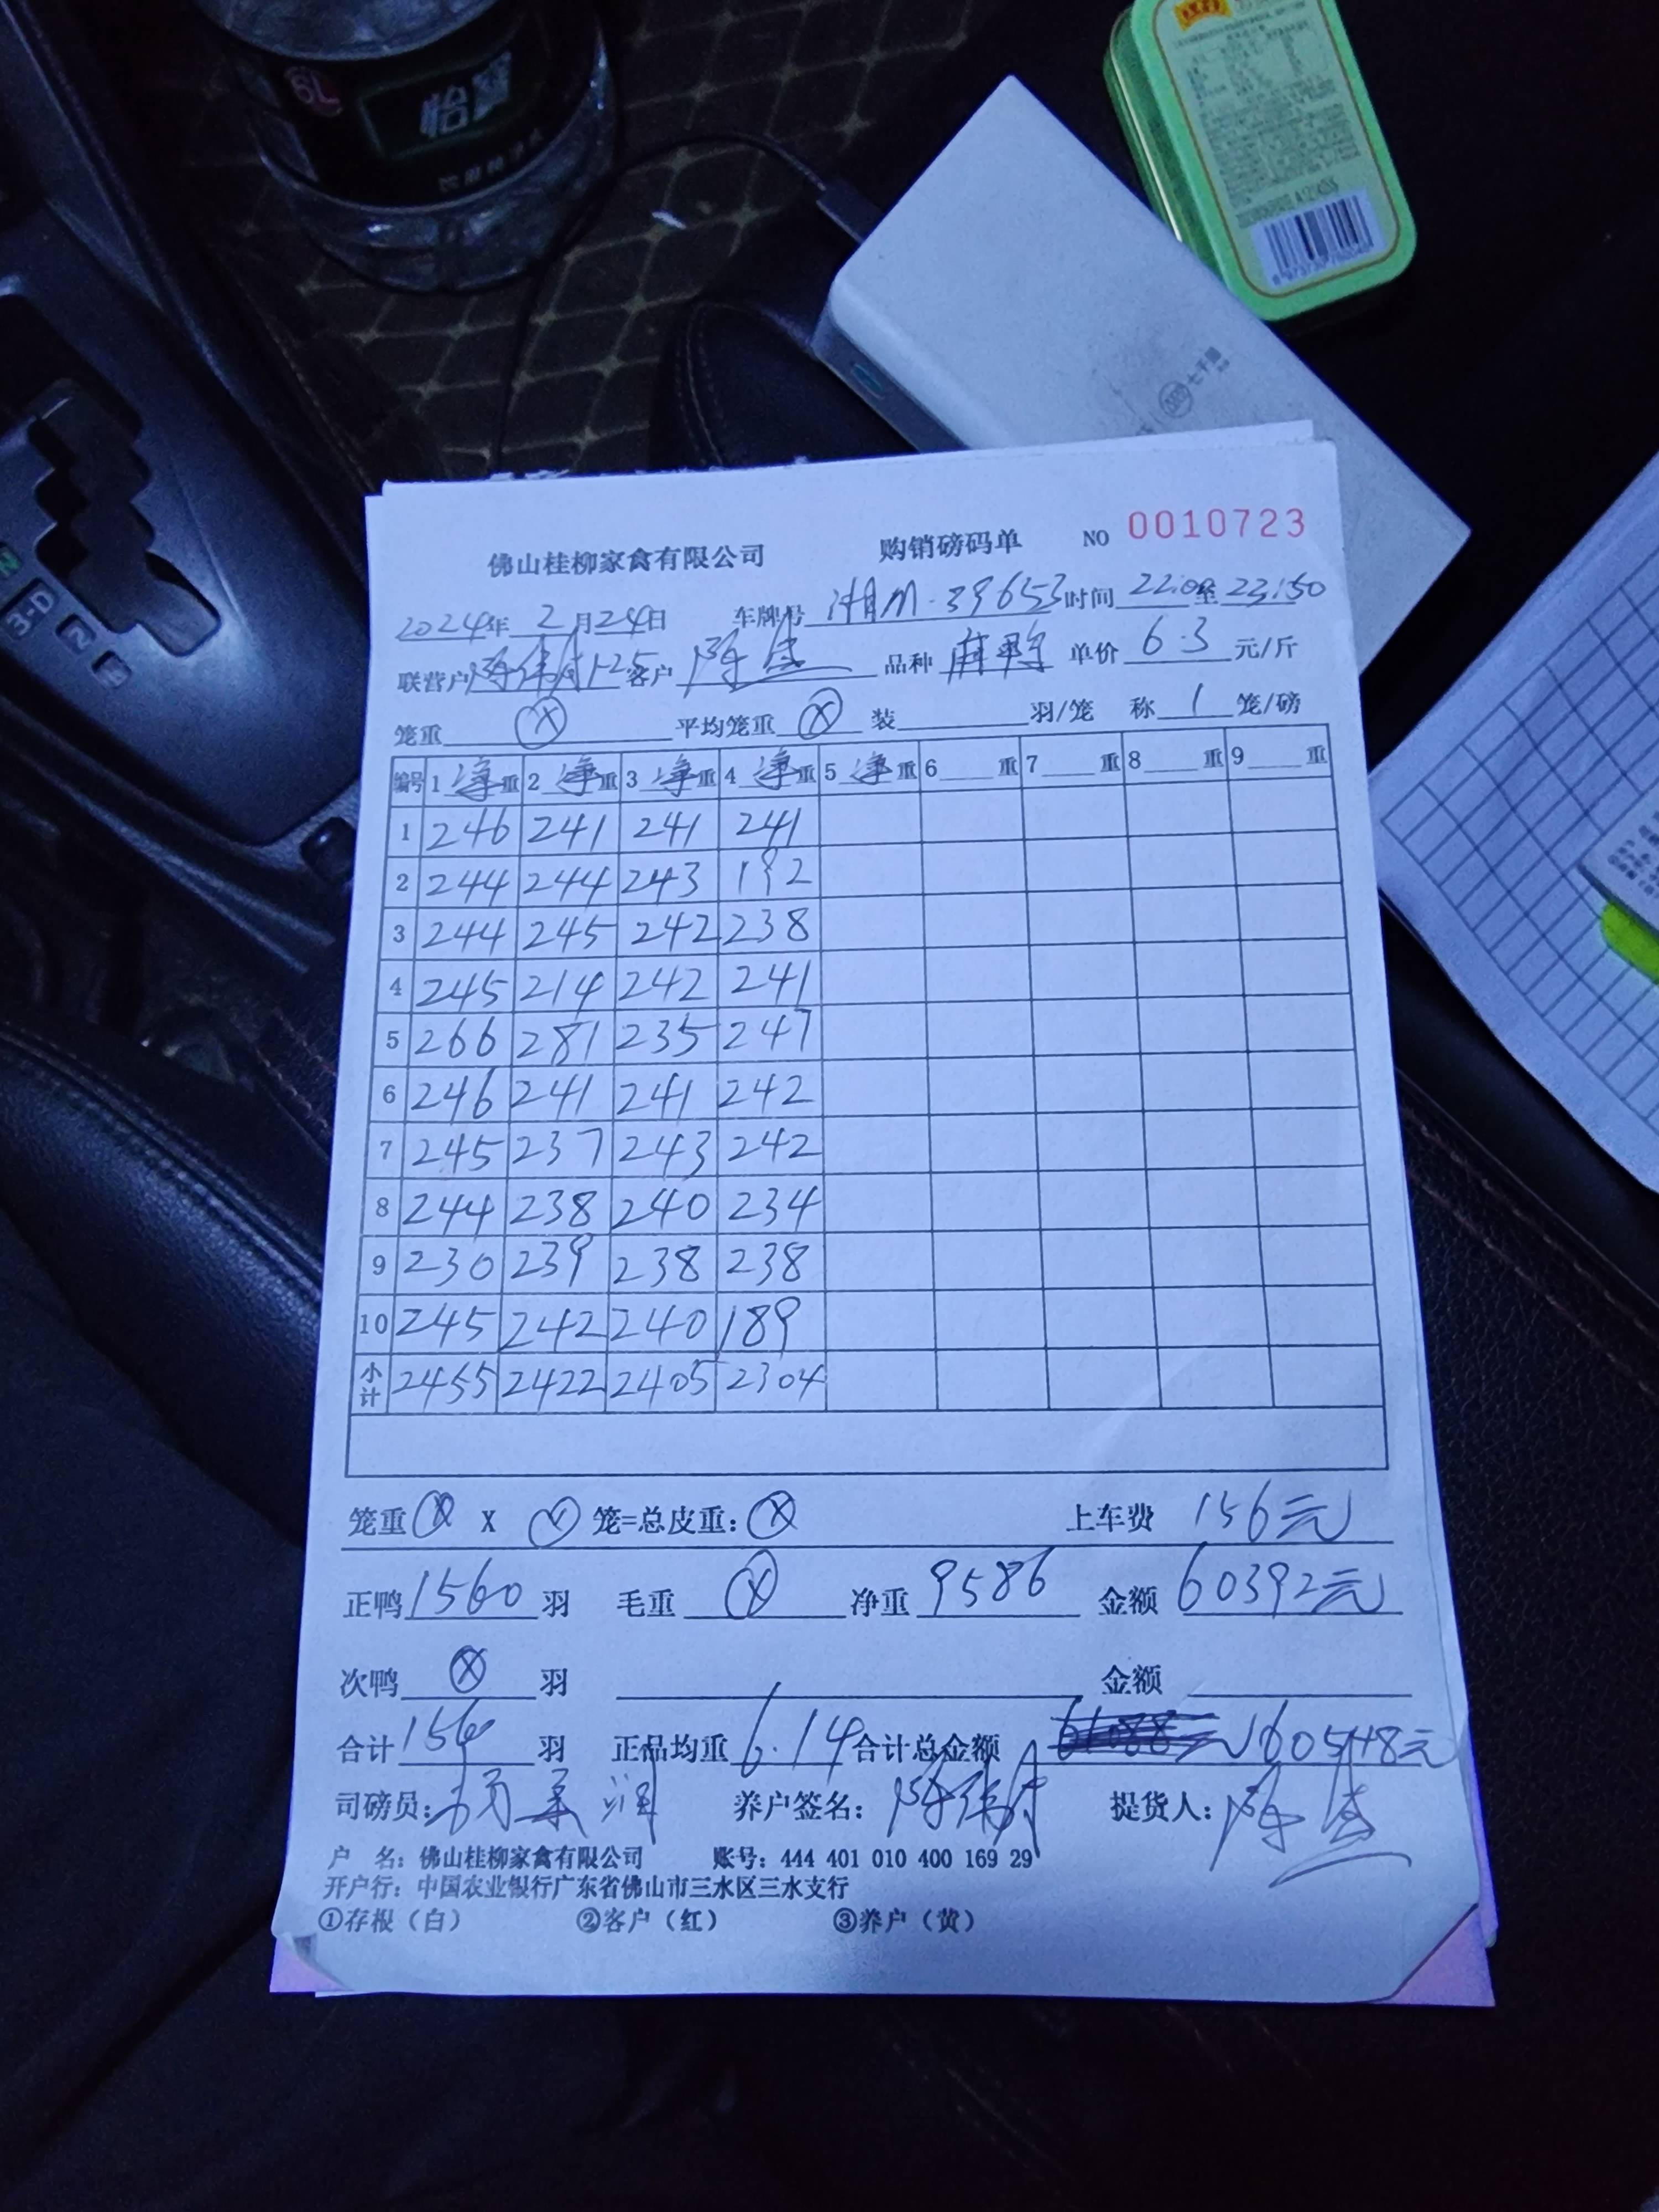 6L 怡寶
七千層
佛山桂柳家禽有限公司 购销磅码单 NO 0010723
2024年 2月24日 车牌号 湘M·39653 时间 22:00至23:50
联营户 客户 陈盛 品种 麻鸭 单价 6.3 元/斤
笼重 ⓧ 平均笼重 ⓧ 装 羽/笼 称 1 笼/磅
编号 1 净重 2 净重 3 净重 4 净重 5 净重 6 重 7 重 8 重 9 重
1 246 241 241 241
2 244 244 243 192
3 244 245 242 238
4 245 214 242 241
5 266 281 235 247
6 246 241 241 242
7 245 237 243 242
8 244 238 240 234
9 230 239 238 238
10 245 242 240 189
小计 2455 2422 2405 2304
笼重 ⓧ X ⓧ 笼=总皮重: ⓧ 上车费 156元
正鸭 1560 羽 毛重 ⓧ 净重 9586 金额 60392元
次鸭 ⓧ 羽 金额
合计 1560 羽 正品均重 6.14 合计总金额 60548元
司磅员: 养户签名: 提货人: 陈盛
户 名: 佛山桂柳家禽有限公司 账号: 444 401 010 400 169 29
开户行: 中国农业银行广东省佛山市三水区三水支行
①存根（白） ②客户（红） ③养户（黄）
N
3-D
2